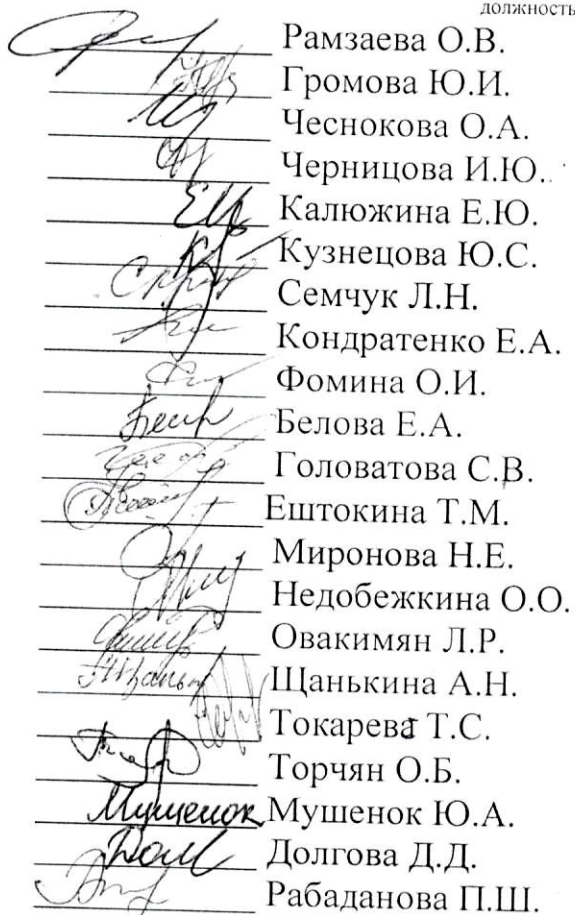 должность
Рамзаева О.В.
Громова Ю.И.
Чеснокова О.А.
Черницова И.Ю.
Калюжина Е.Ю.
Кузнецова Ю.С.
Семчук Л.Н.
Кондратенко Е.А.
Фомина О.И.
Белова Е.А.
Головатова С.В.
Ештокина Т.М.
Миронова Н.Е.
Недобежкина О.О.
Овакимян Л.Р.
Щанькина А.Н.
Токарева Т.С.
Торчян О.Б.
Мушенок Мушенок Ю.А.
Долгова Д.Д.
Рабаданова П.Ш.